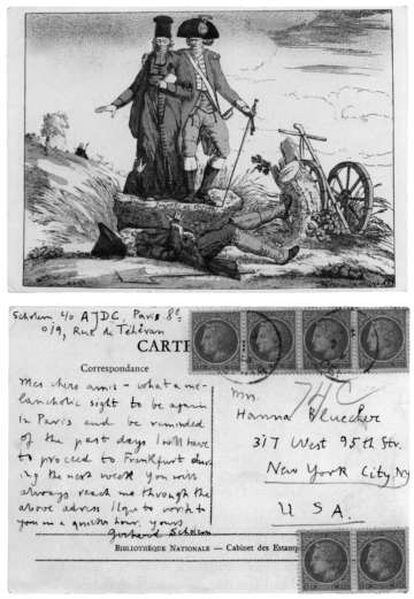 Scholem c/o AJDC, Paris 8e
Rue de Téhéran
CARTE
Correspondance
Mes chers amis - what a me-
lancholic sight to be again
in Paris and be reminded
of the past days I will have
to proceed to Frankfurt dur-
ing the next week You will
always reach me through the
above adress I hope to write to
you in a quieter hour, yours
Gerhard Scholem
Mrs.
Hanna Bluecher
317 West 95th Str.
New York City NY
USA.
BIBLIOTHÈQUE NATIONALE — Cabinet des Estamp